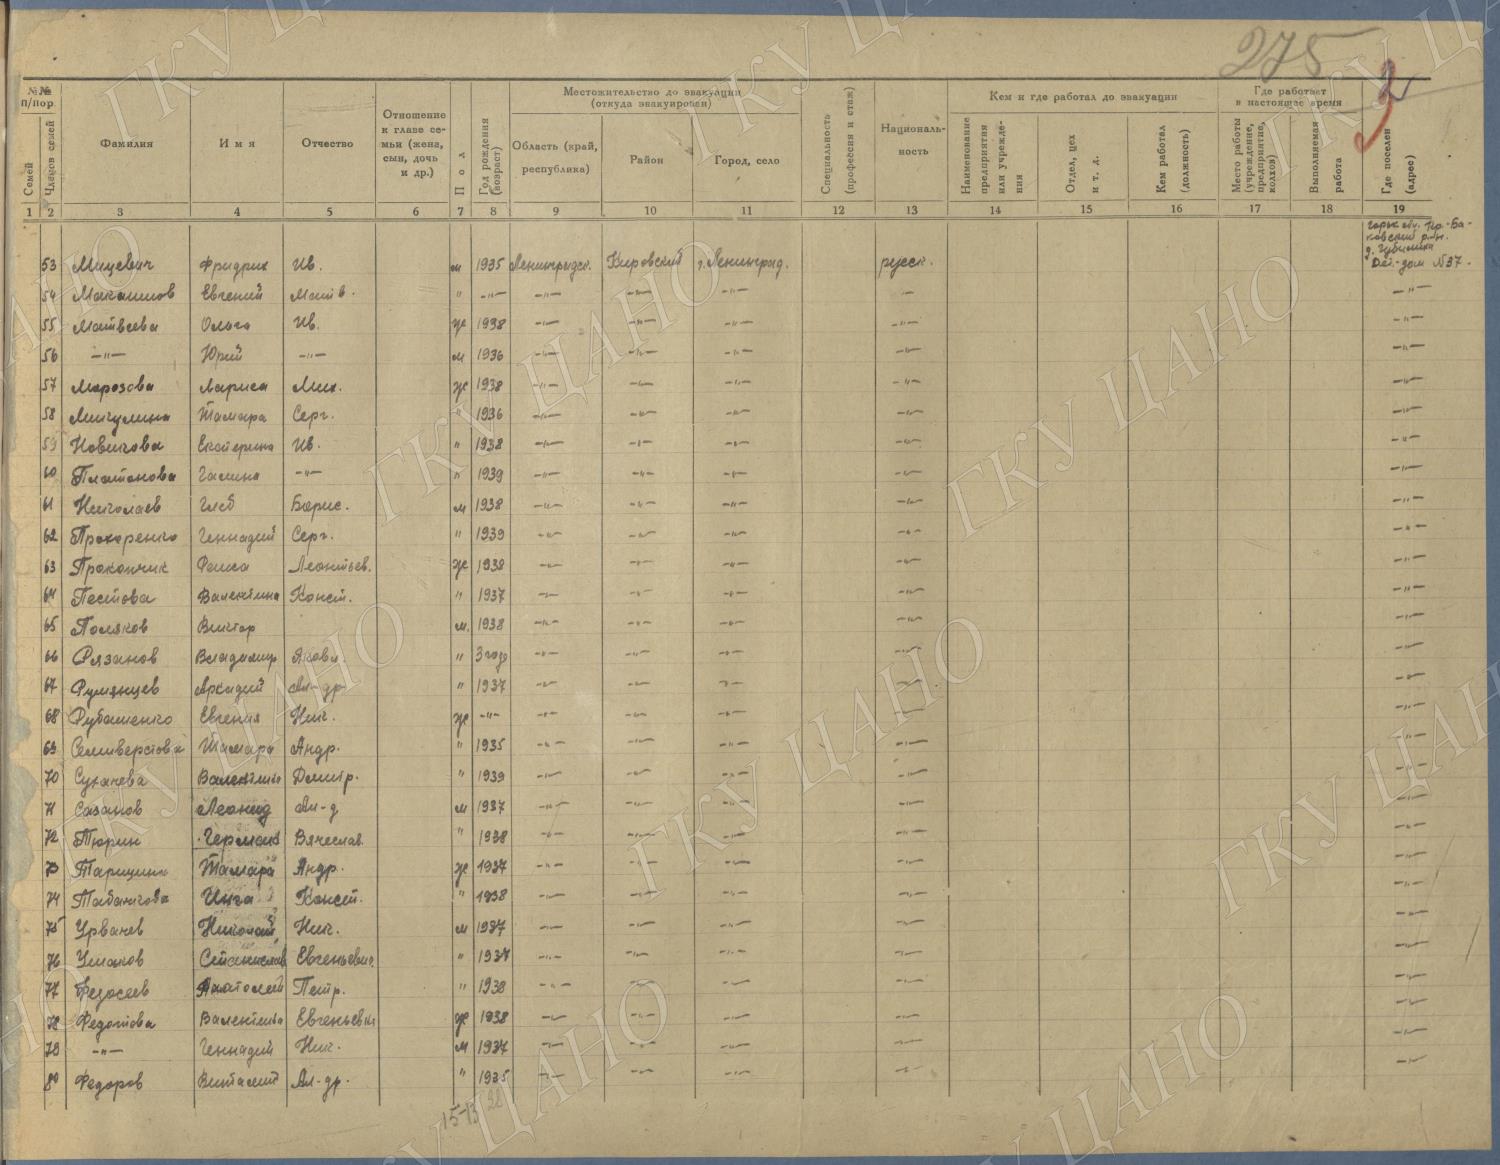 275
2
№№ п/пор.
Семей
Членов семей
Фамилия
Имя
Отчество
Отношение к главе семьи (жена, сын, дочь и др.)
Пол
Год рождения (возраст)
Местожительство до эвакуации (откуда эвакуирован)
Область (край, республика)
Район
Город, село
Специальность (профессия и стаж)
Националь-
ность
Кем и где работал до эвакуации
Наименование предприятия или учреждения
Отдел, цех и т. д.
Кем работал (должность)
Где работает в настоящее время
Место работы (учреждение, предприятие, колхоз)
Выполняемая работа
Где поселен (адрес)
1 2 3 4 5 6 7 8 9 10 11 12 13 14 15 16 17 18 19
53 Мицевич Фридрих Ив. м 1935 Ленинградск. Кировский г. Ленинград. русск. Дет.-дом №37.
54 Максимов Евгений Матв. " -"- -"- -"- -"- -"- -"-
55 Матвеева Ольга Ив. ж 1938 -"- -"- -"- -"- -"-
56 -"- Юрий -"- м 1936 -"- -"- -"- -"- -"-
57 Морозова Лариса Мих. ж 1938 -"- -"- -"- -"- -"-
58 Мичулина Тамара Серг. " 1936 -"- -"- -"- -"- -"-
59 Новикова Екатерина Ив. " 1938 -"- -"- -"- -"- -"-
60 Платонова Галина -"- " 1939 -"- -"- -"- -"- -"-
61 Николаев Глеб Борис. м 1938 -"- -"- -"- -"- -"-
62 Прохоренко Геннадий Серг. " 1939 -"- -"- -"- -"- -"-
63 Прокопчик Раиса Леонтьев. ж 1938 -"- -"- -"- -"- -"-
64 Пестова Валентина Конст. " 1937 -"- -"- -"- -"- -"-
65 Поляков Виктор м. 1938 -"- -"- -"- -"- -"-
66 Рязанов Владимир Яковл. " 3 года -"- -"- -"- -"- -"-
67 Румянцев Аркадий Ал-др. " 1937 -"- -"- -"- -"- -"-
68 Рубашенко Евгения Ник. ж -"- -"- -"- -"- -"- -"-
69 Селиверстова Тамара Андр. " 1935 -"- -"- -"- -"- -"-
70 Сукачева Валентина Дмитр. " 1939 -"- -"- -"- -"- -"-
71 Сазанов Леонид Ал-д м 1937 -"- -"- -"- -"- -"-
72 Тюрин Герман Вячеслав. " 1938 -"- -"- -"- -"- -"-
73 Тарицина Тамара Андр. ж 1937 -"- -"- -"- -"- -"-
74 Табачкова Инга Конст. " 1938 -"- -"- -"- -"- -"-
75 Урванев Николай Ник. м 1937 -"- -"- -"- -"- -"-
76 Ушаков Станислав Евгеньевич. " 1937 -"- -"- -"- -"- -"-
77 Федосеев Анатолий Петр. " 1938 -"- -"- -"- -"- -"-
78 Федотова Валентина Евгеньевн ж 1938 -"- -"- -"- -"- -"-
79 -"- Геннадий Ник. м 1937 -"- -"- -"- -"- -"-
80 Федоров Виталий Ал-др. " 1935 -"- -"- -"- -"- -"-
15-13
ГКУ ЦАНО